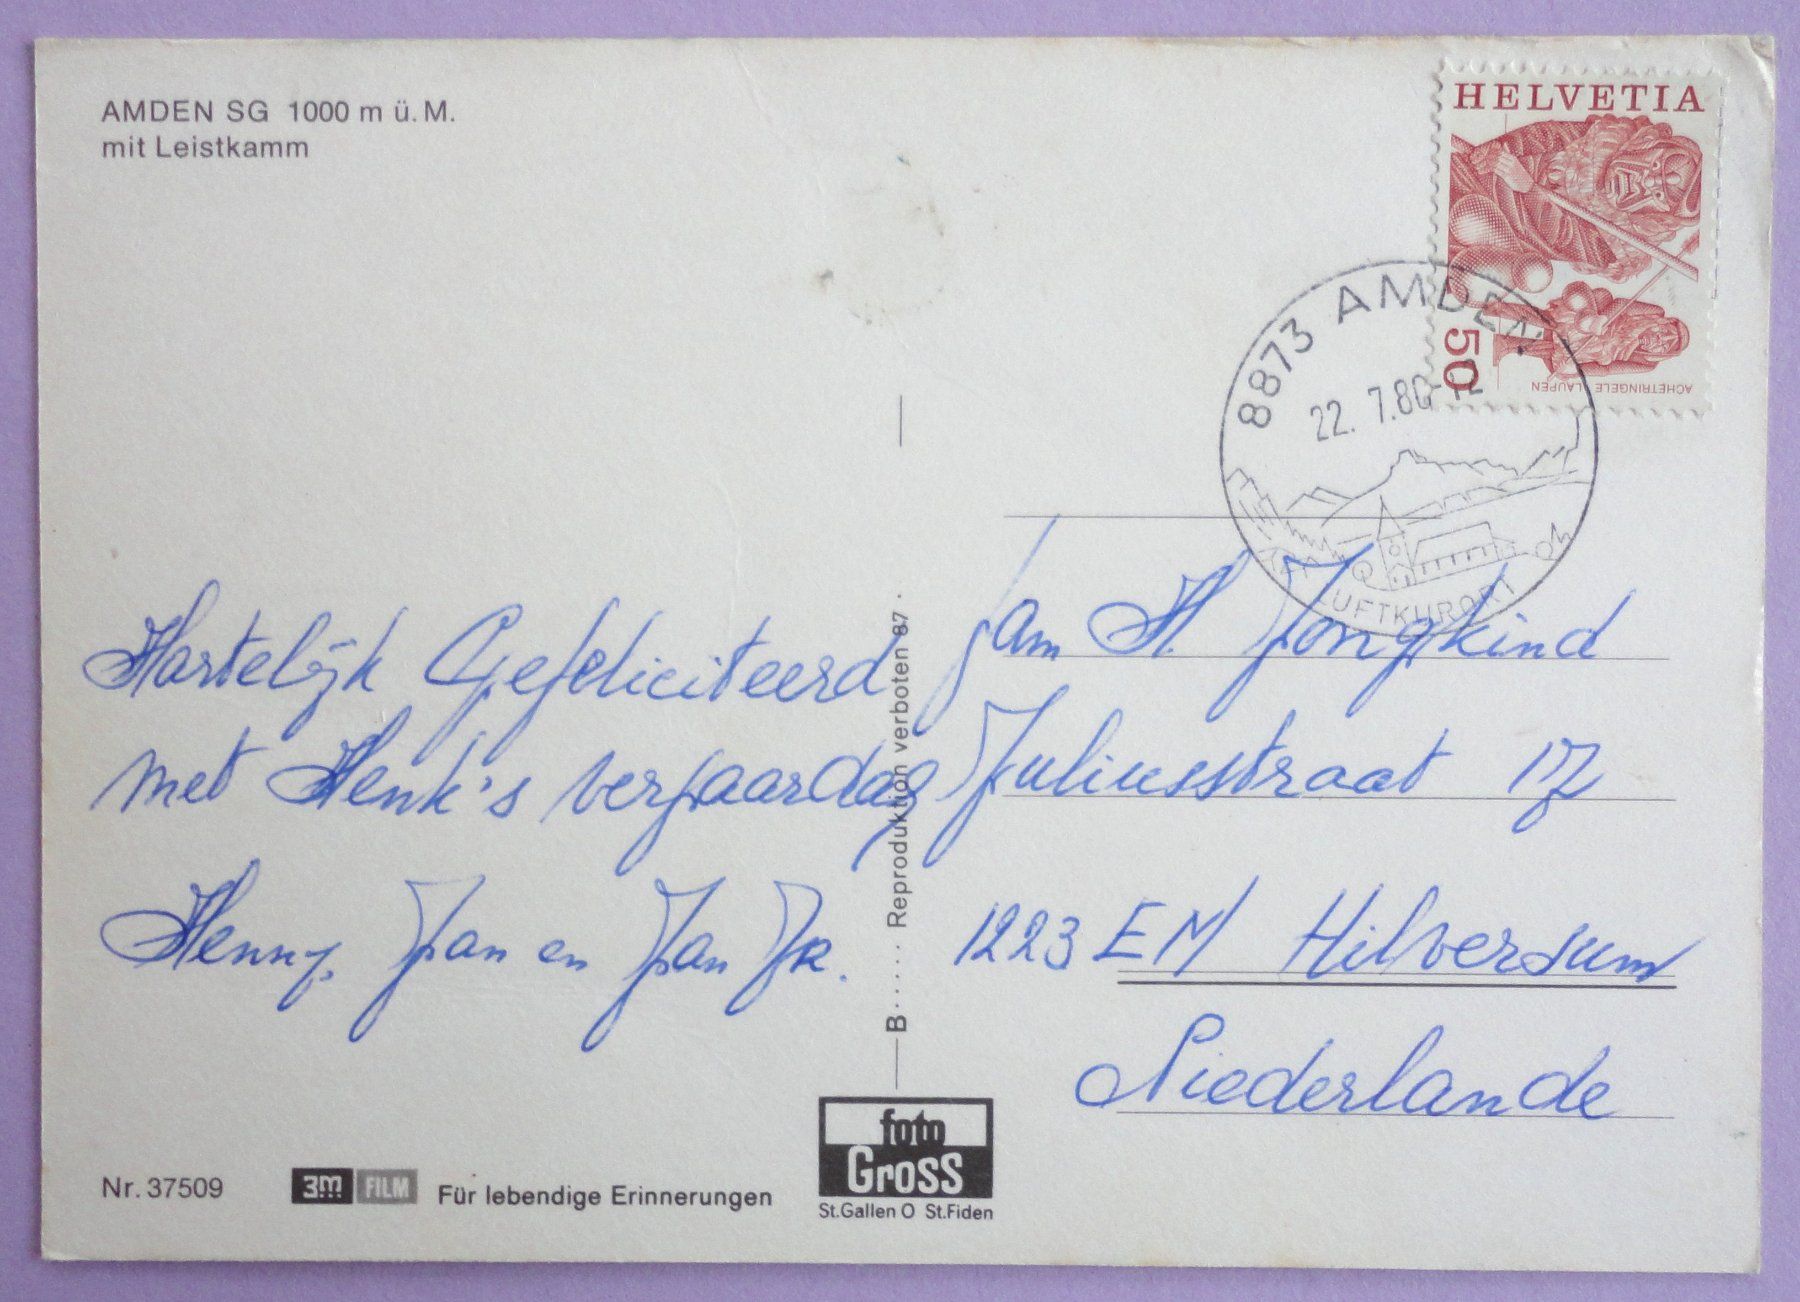 AMDEN SG 1000 m ü. M.
mit Leistkamm
HELVETIA
50
ACHETRINGELE LAUPEN
8873 AMDEN
22. 7.80
LUFTKURORT
Hartelijk Gefeliciteerd
met Henk's verjaardag
Henny, Jan en Jan Jr.
fam H. Jongkind
Juliusstraat 17
1223 EM Hilversum
Niederlande
B ..... Reproduktion verboten 87 .
Nr. 37509
3M FILM Für lebendige Erinnerungen
foto
Gross
St.Gallen O St.Fiden